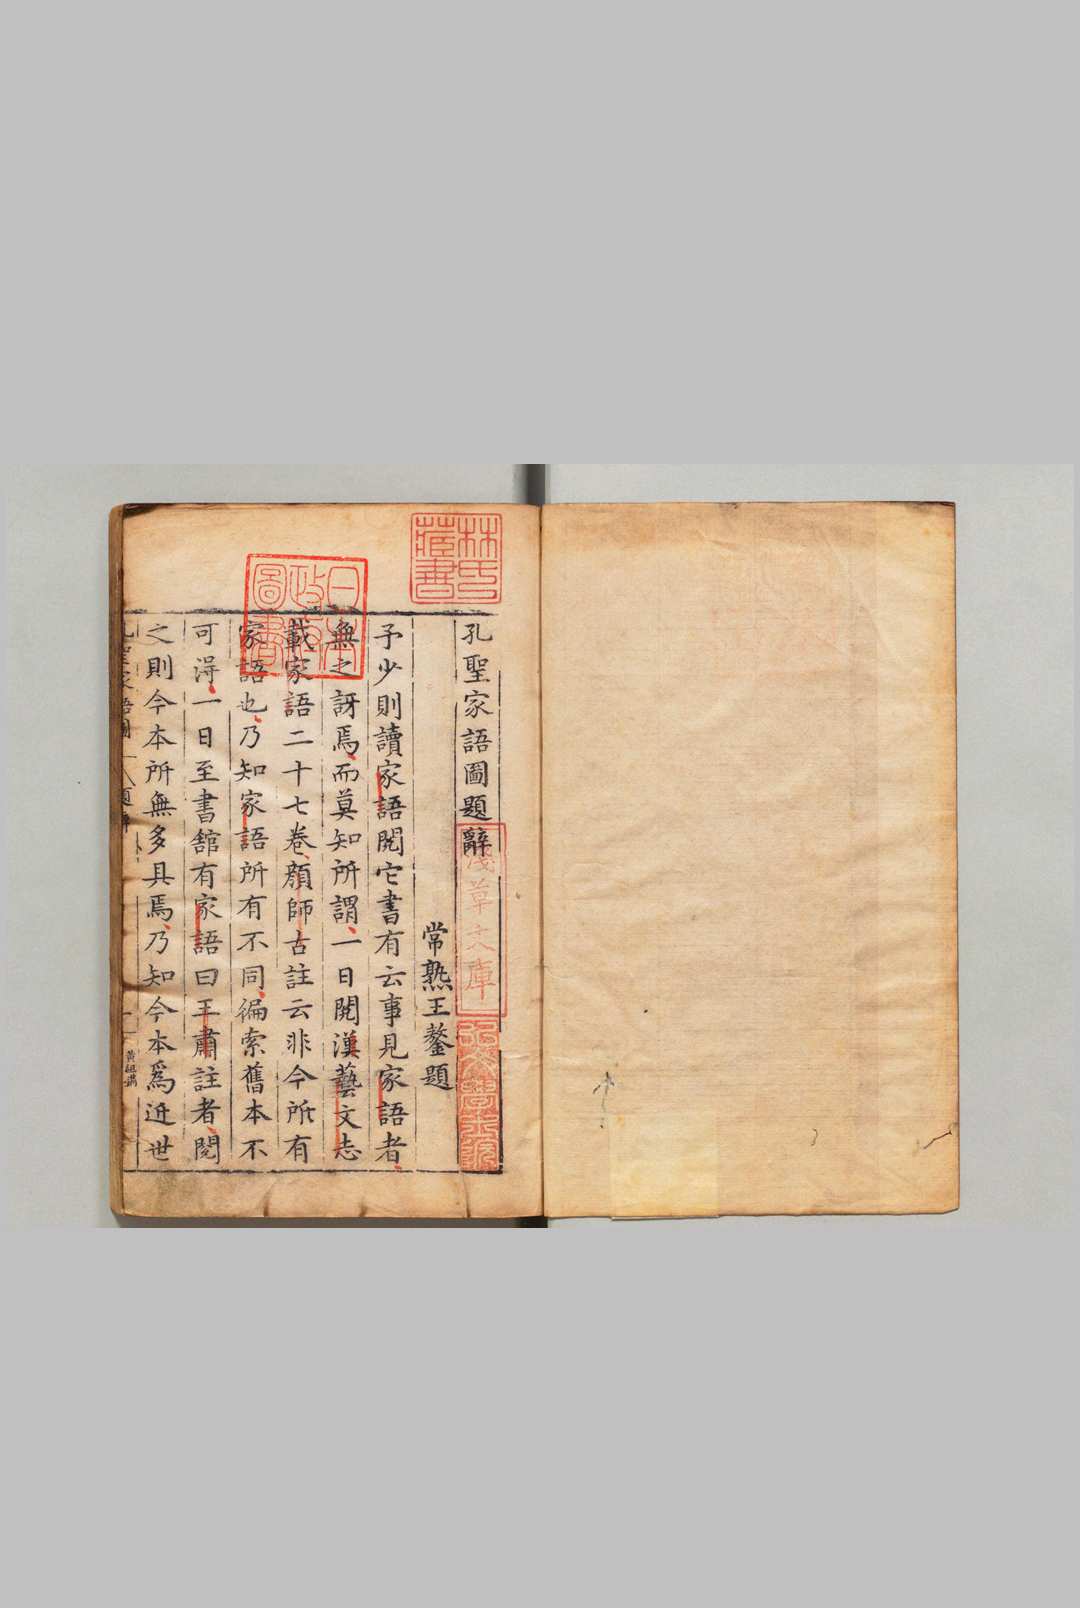 孔聖家語圖題辭
常熟王鏊題
予少則讀家語閱它書有云事見家語者
無之訝焉而莫知所謂一日閱漢藝文志
載家語二十七卷顏師古註云非今所有
家語也乃知家語所有不同徧索舊本不
可得一日至書舘有家語曰王肅註者閱
之則今本所無多具焉乃知今本爲近世
孔聖家語圖
題辭
一
黃組
林氏
藏書
日本
政府
圖書
淺草文庫